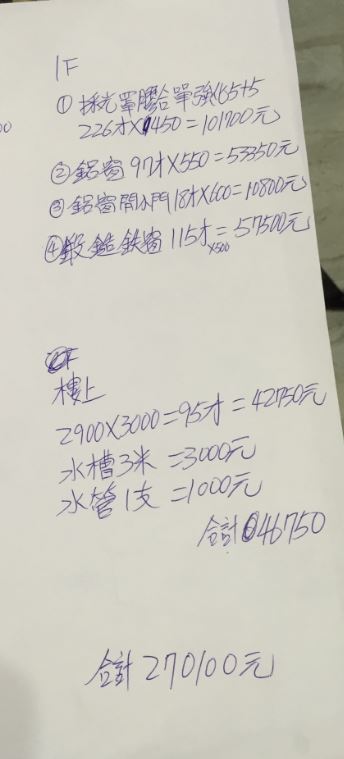 00
1F
① 採光罩膠合單強化5+5
226才×450=101700元
② 鋁窗 97才×550=53350元
③ 鋁窗開小門18才×600=10800元
④ 鍛鑄鉄窗 115才=57500元
×500
樓上
2900×3000=95才=42750元
水槽3米 =3000元
水管1支 =1000元
合計 46750
合計 270100元